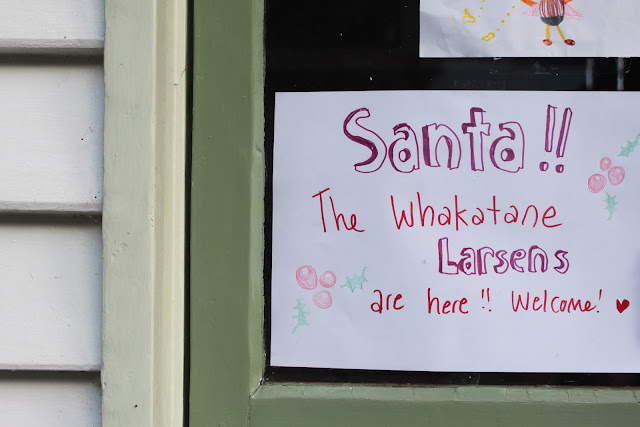 Santa!!
The Whakatane
Larsens
are here!! Welcome! ♥